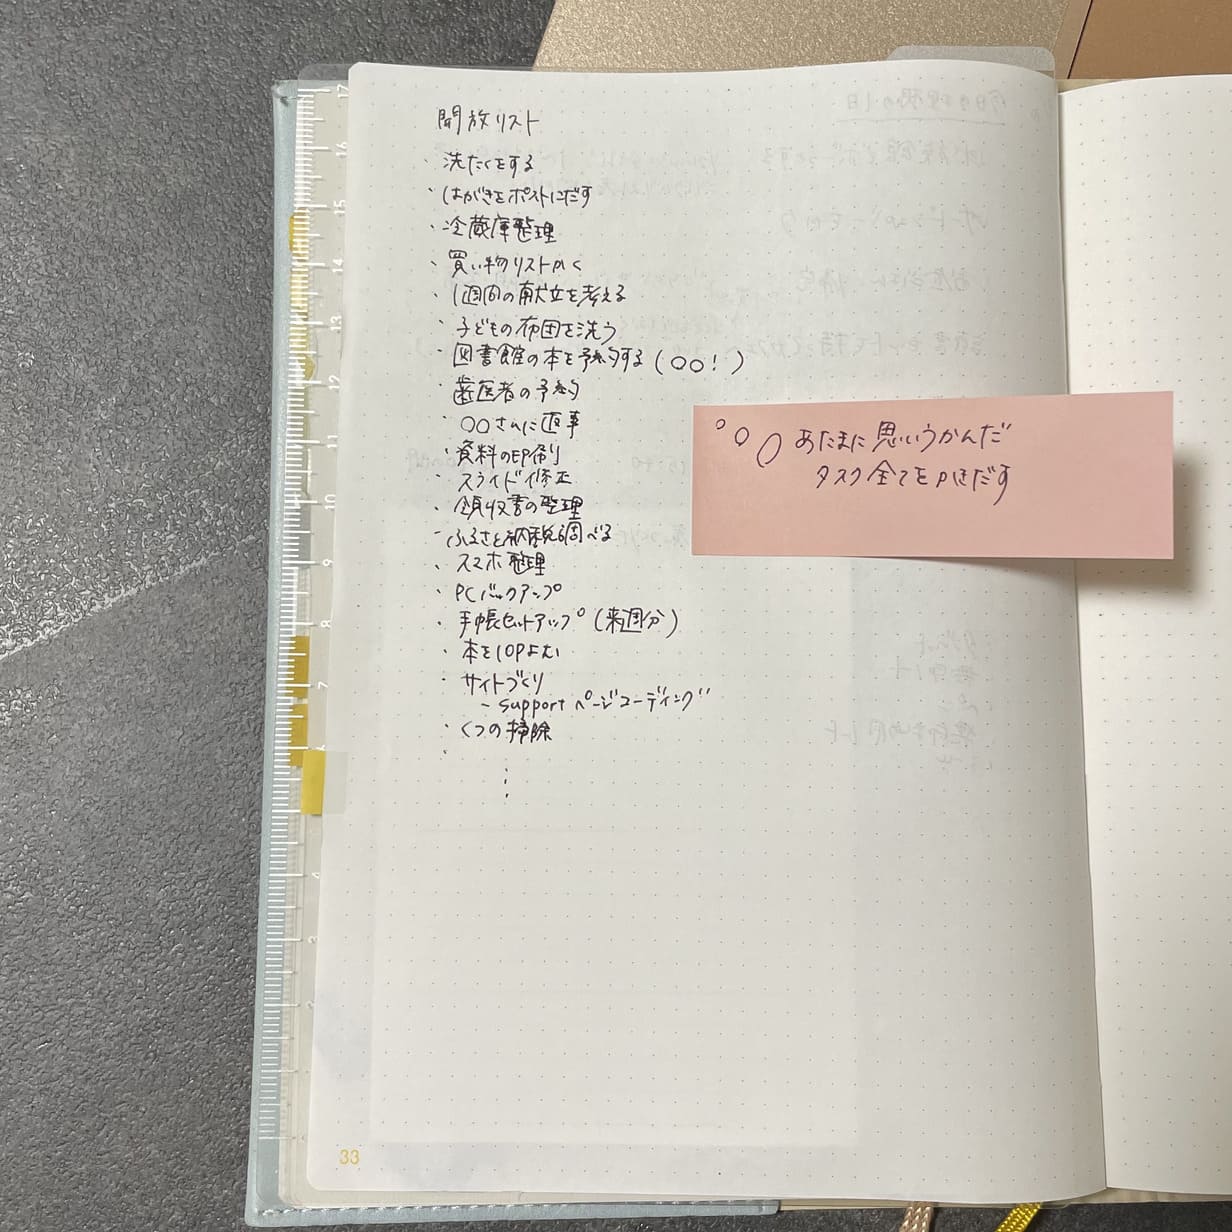 開放リスト
・洗たくをする
・はがきをポストにだす
・冷蔵庫整理
・買い物リストかく
・1週間の献立を考える
・子どもの布団を洗う
・図書館の本を予約する(○○!)
・歯医者の予約
・○○さんに返事
・資料の印刷
・スライド修正
・領収書の整理
・ふるさと納税を調べる
・スマホ整理
・PCバックアップ
・手帳セットアップ(来週分)
・本を10Pよむ
・サイトづくり
- Supportページコーディング
・くつの掃除
・
⋮
○○○ あたまに思いうかんだ
タスク全てをかきだす
33
17
16
15
14
13
12
10
9
8
7
6
4
3